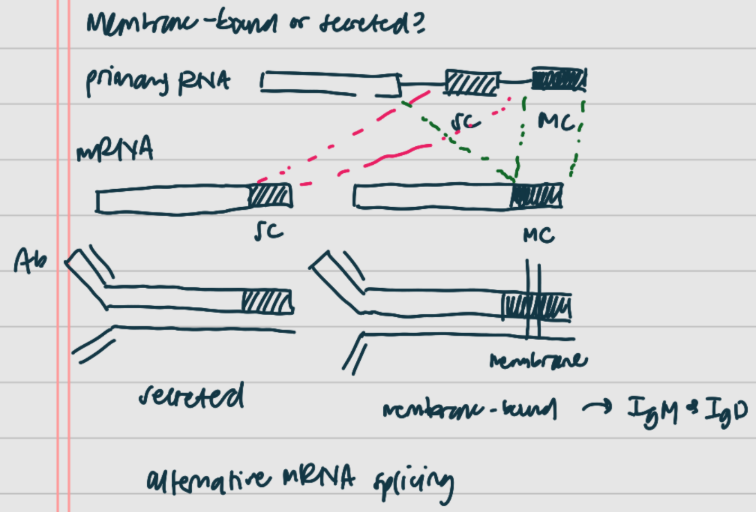 Membrane-bound or secreted?
primary RNA
SC MC
mRNA
SC MC
Ab
membrane
secreted
membrane-bound → IgM & IgD
alternative mRNA splicing